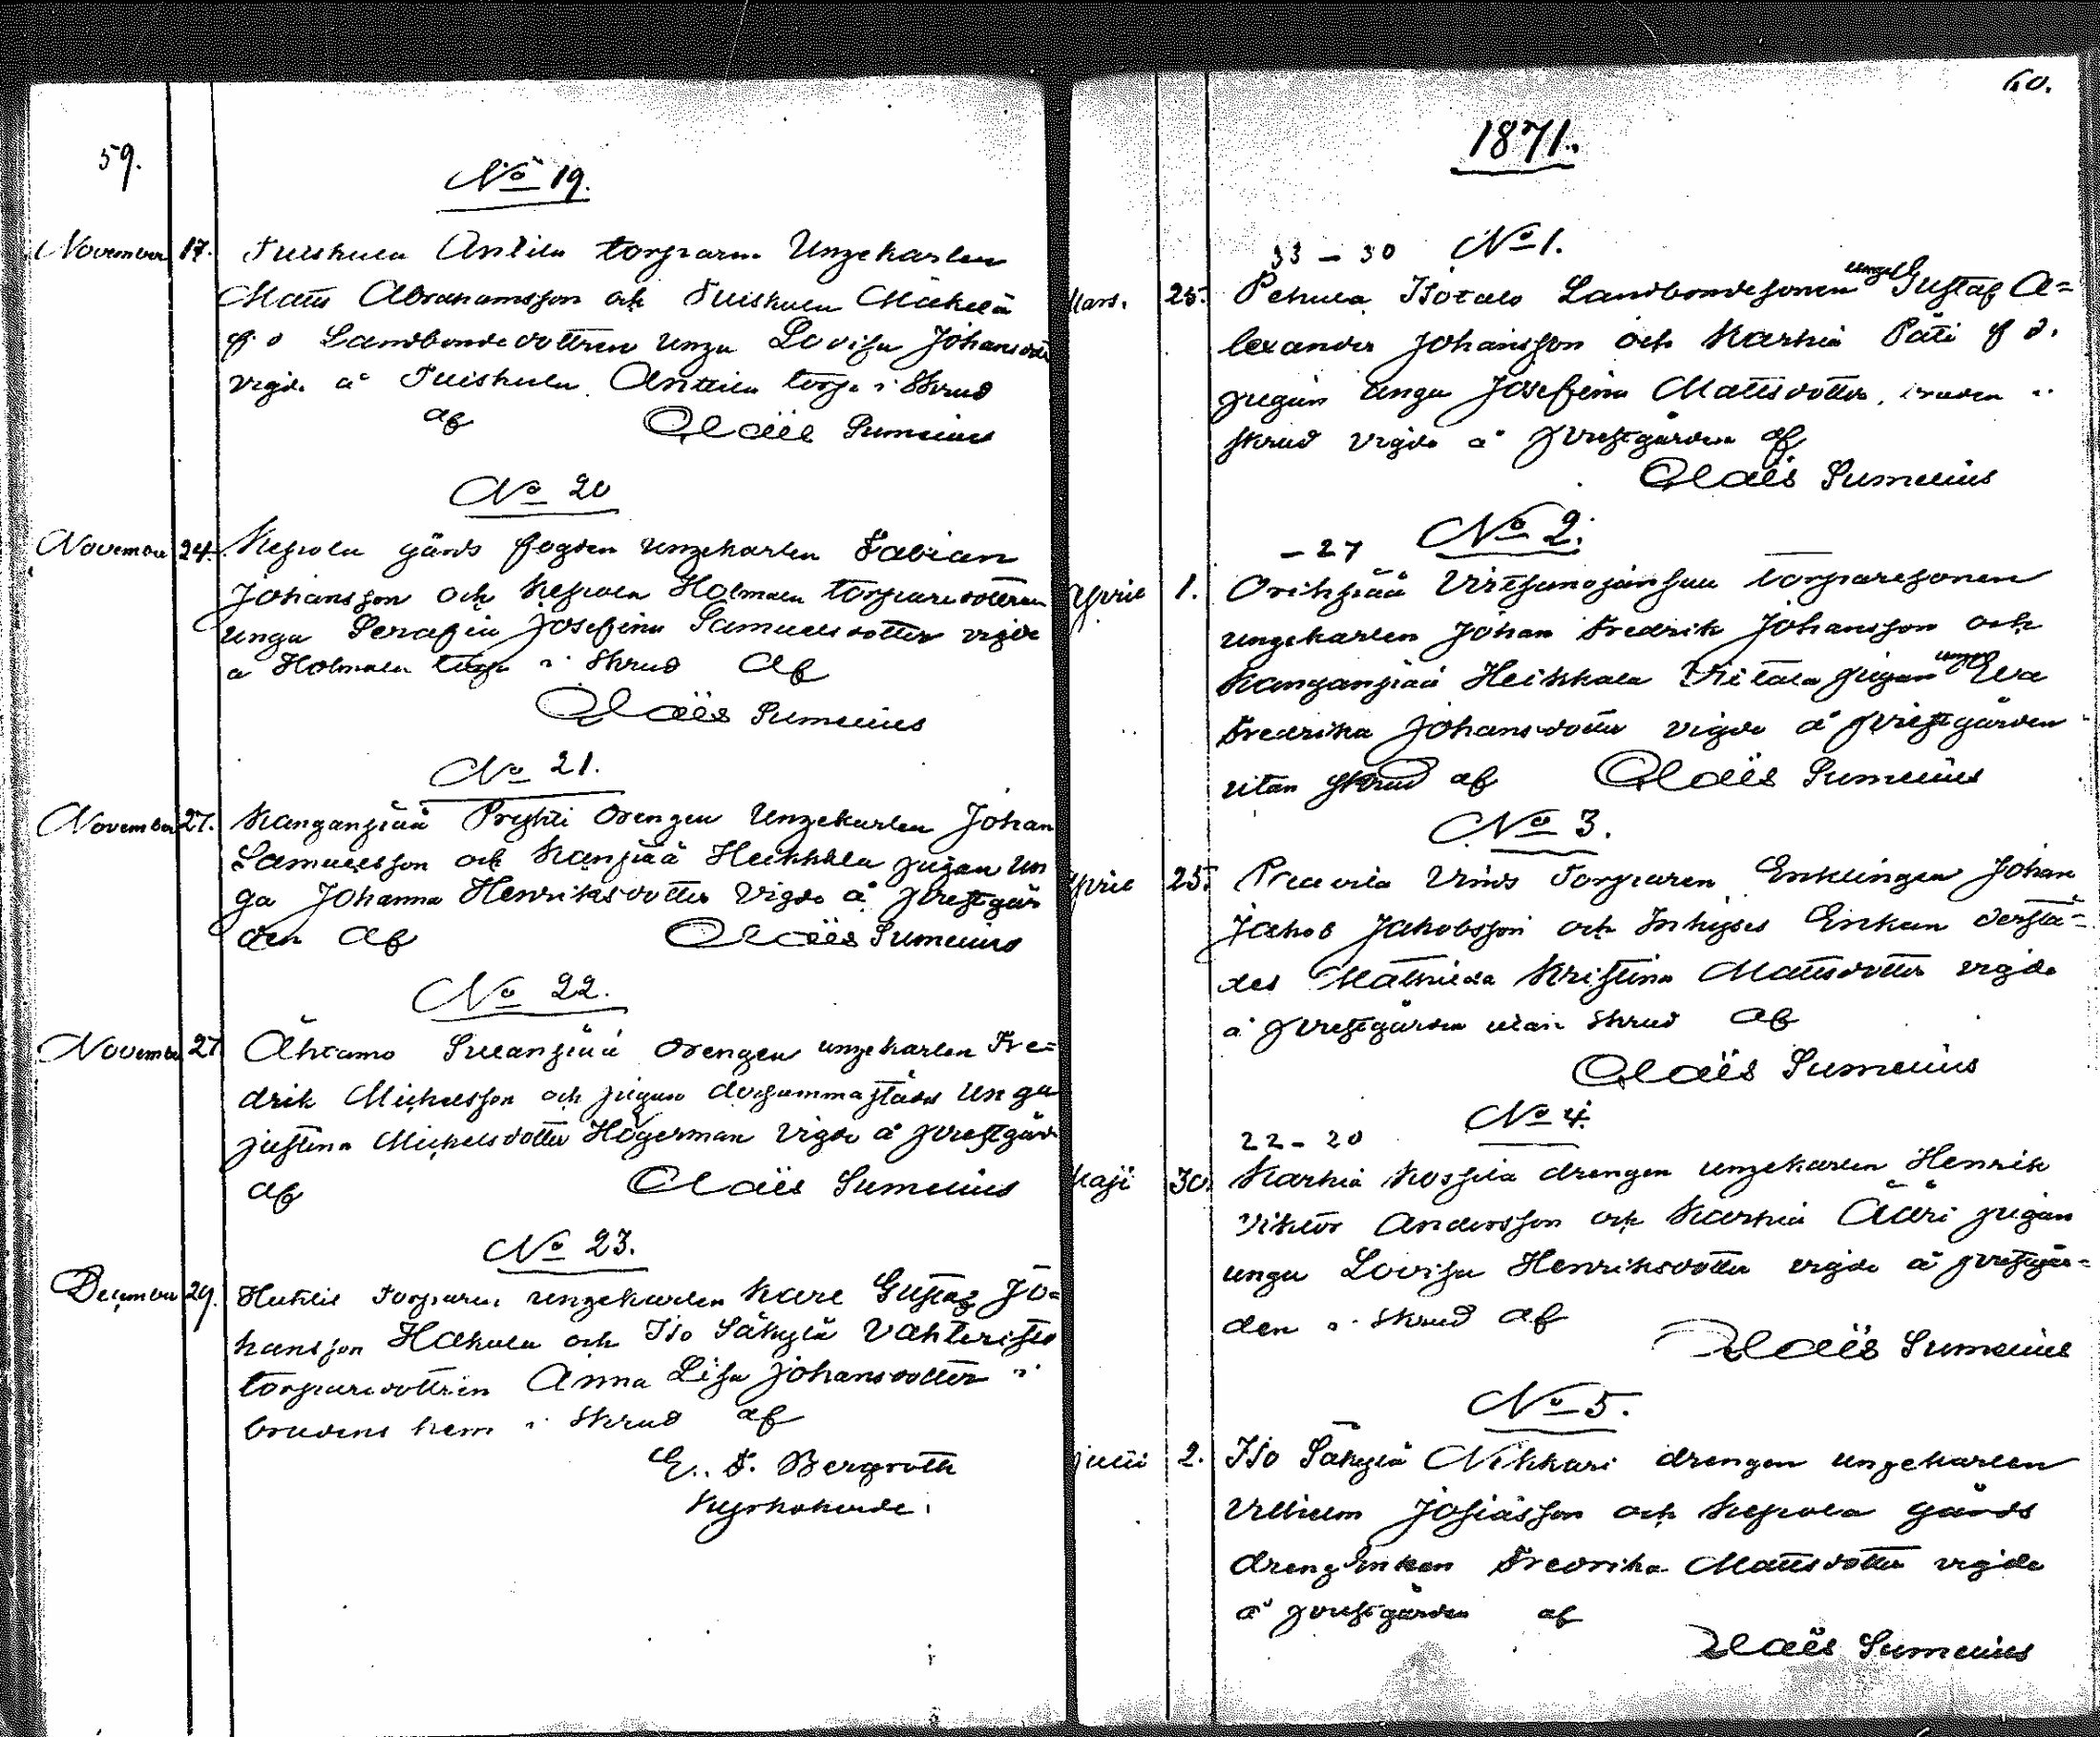 59.
No 19.
November 17. Tuiskula Antila torparen Ungekarlen
Matts Abrahamsson och Tuiskula Mäkelä
f. d Landbondedottren unga Lovisa Johansdtr
vigde å Tuiskula Anttila torp i Skrud
af Claës Sumelius
No 20
November 24. Kepola gårds fogden ungekarlen Fabian
Johansson och Kepola Holmala torparedottren
unga Serafia Josefina Samuelsdotter vigde
a Holmala torp i Skrud af
Claës Sumelius
No 21.
November 27. Kanganpää Prykti drengen Ungekarlen Johan
Samuelsson och Kanpää Heikkilä pigan un
ga Johanna Henriksdotter vigde å prestgår
den af Claës Sumelius
No 22.
November 27 drengen ungekarlen Fre=
drik Michelsson och pigan dersammastädes unga
Justina Michelsdotter Högerman vigde å prestgård
af Claës Sumelius
No 23.
December 29. torparen ungekarlen Karl Gustaf Jo=
hansson Hakala och Iso Säkylä Vahteristo
torparedottren Anna Lisa Johansdotter i
brudens hem i Skrud af
E. F. Bergroth
Kyrkoherde.
60.
1871.
33 – 30 No 1.
Mars. 25. Pehula Isotalo Landbondesonen ungk Gustaf A=
lexander Johansson och Karhia Päti f d.
pigan unga Josefina Mattsdotter, bruden i
skrud vigde å prestgården af
Claës Sumelius
– 27 No 2.
April 1. Orihpää torparesonen
ungekarlen Johan Fredrik Johansson och
Kanganpää Heikkala Vitala pigan unga Eva
Fredrika Johansdotter vigde å prestgården
utan skrud af Claës Sumelius
No 3.
April 25. Torparen Enklingen Johan
Jakob Jakobsson och Inhyses Enkan derstä=
des Mathilda Kristina Mattsdotter vigde
å prestgården utan skrud af
Claës Sumelius
No 4.
22 – 20
Maji 30. Karhia Kossila drengen ungekarlen Henrik
Viktor Andersson och Karhia Ääri pigan
unga Lovisa Henriksdotter vigde å prestgår=
den i Skrud af
Claës Sumelius
No 5.
Juni 2. Iso Säkylä Nikkari drengen ungekarlen
Vilhelm Josiasson och Kepola gårds
drengEnkan Fredrika Mattsdotter vigde
å prestgården af
Claës Sumelius